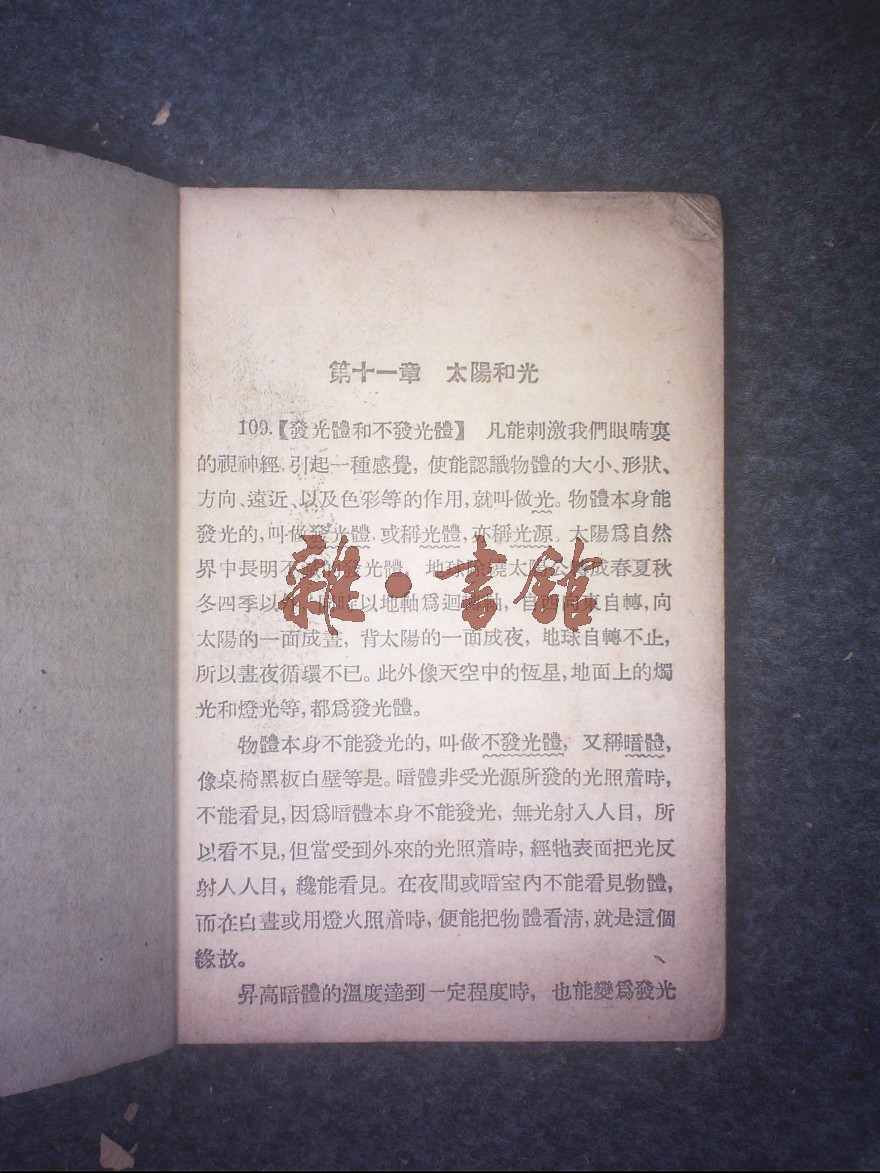 第十一章 太陽和光
109.【發光體和不發光體】 凡能刺激我們眼睛裏
的視神經,引起一種感覺,使能認識物體的大小、形狀、
方向、遠近、以及色彩等的作用,就叫做光。物體本身能
發光的,叫做發光體,或稱光體,亦稱光源。太陽爲自然
界中長明不滅的發光體,地球除繞太陽公轉成春夏秋
冬四季以外,同時以地軸爲迴轉軸,自西向東自轉,向
太陽的一面成晝,背太陽的一面成夜,地球自轉不止,
所以晝夜循環不已。此外像天空中的恆星,地面上的燭
光和燈光等,都爲發光體。
物體本身不能發光的,叫做不發光體,又稱暗體,
像桌椅黑板白壁等是。暗體非受光源所發的光照着時,
不能看見,因爲暗體本身不能發光,無光射入人目,所
以看不見,但當受到外來的光照着時,經牠表面把光反
射人人目,纔能看見。在夜間或暗室內不能看見物體,
而在白晝或用燈火照着時,便能把物體看清,就是這個
緣故。
昇高暗體的溫度達到一定程度時,也能變爲發光
雜·書館